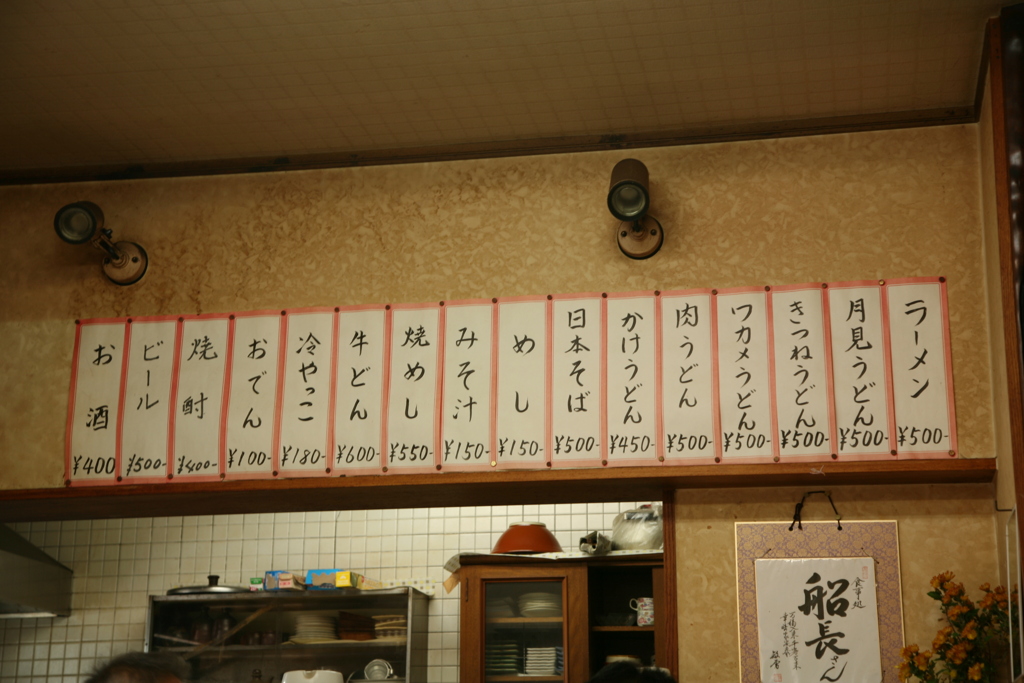 ラーメン
¥500-
月見うどん
¥500-
きつねうどん
¥500-
ワカメうどん
¥500-
肉うどん
¥500-
かけうどん
¥450-
日本そば
¥500-
めし
¥150-
みそ汁
¥150-
焼めし
¥550-
牛どん
¥600-
冷やっこ
¥180-
おでん
¥100-
焼酎
¥400-
ビール
¥500-
お酒
¥400
食事処
船長さん